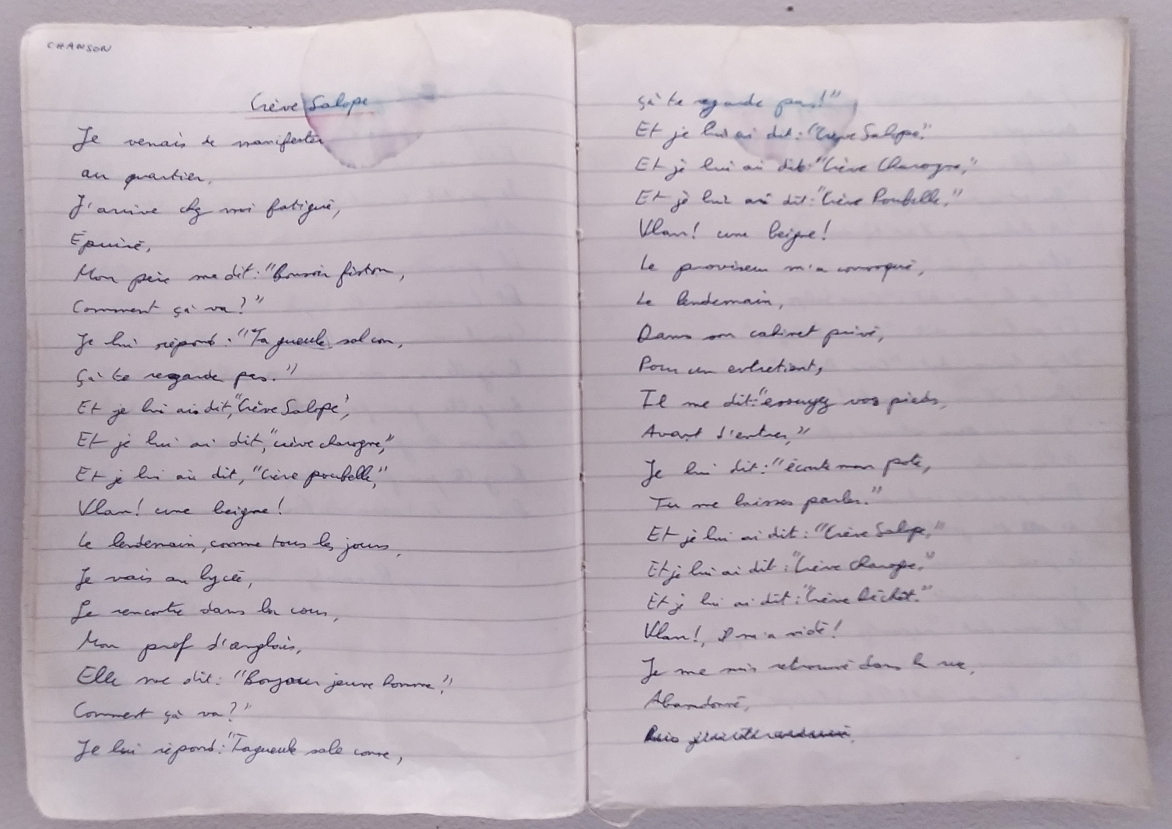 CHANSON
Crève Salope
Je venais de manifester
au quartier,
J'arrive chez moi fatigué,
Épuisé,
Mon père me dit: "Bonsoir fiston,
Comment çà va?"
Je lui répond: "Ta gueule sal con,
Çà te regarde pas."
Et je lui ais dit, "Crève Salope",
Et je lui ai dit, "crève charogne,"
Et je lui ai dit, "Crève poubelle,"
Vlan! une beigne!
Le lendemain, comme tous les jours,
Je vais au lycée,
Je rencontre dans la cour,
Mon prof d'anglais,
Elle me dit: "Bonjour jeune homme!
Comment çà va?"
Je lui répond: "Tagueule sale conne,
çà te regarde pas!"
Et je lui ai dit: "Crève Salope."
Et je lui ai dit: "Crève Charogne,"
Et je lui ai dit: "Crève Poubelle,"
Vlan! une beigne!
Le proviseur m'a convoqué,
Le lendemain,
Dans son cabinet privé,
Pour un entretient,
Il me dit: "essuyez vos pieds,
Avant d'entrer,"
Je lui dit: "écoute mon pote,
Tu me laisses parler."
Et je lui ai dit: "Crève Salope,"
Et je lui ai dit: "Crève charogne,"
Et je lui ai dit: "Crève Déchêt."
Vlan!, il m'a vidé!
Je me suis retrouvé dans la rue,
Abandonné,